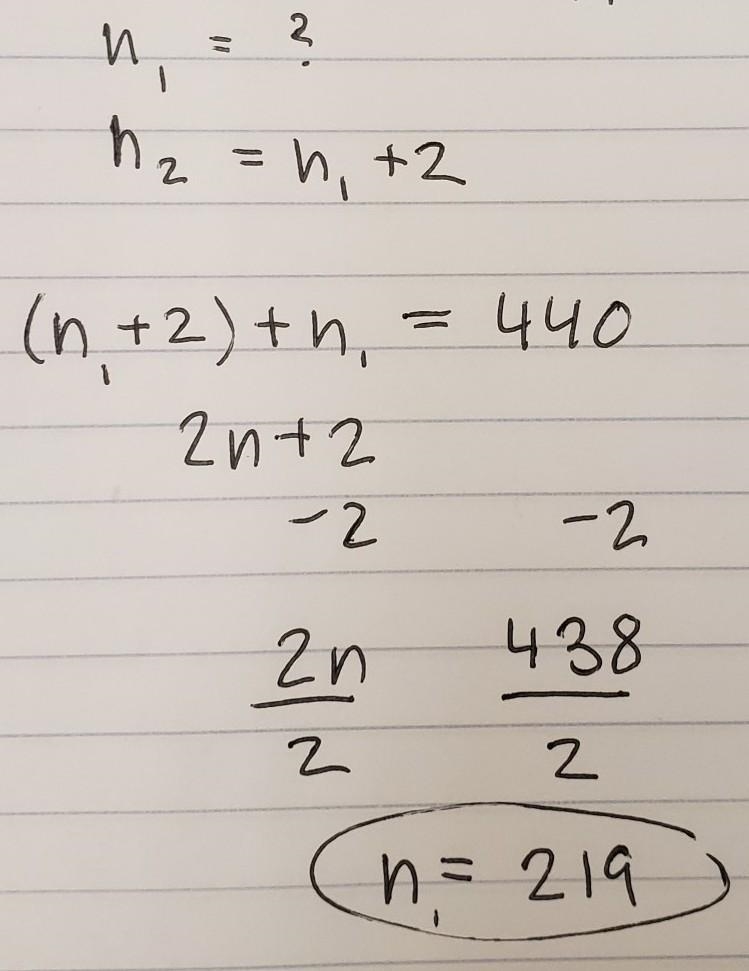 n₁ = ?
n₂ = n₁ + 2
(n₁ + 2) + n₁ = 440
2n + 2
-2 -2
2n 438
2 2
n₁ = 219